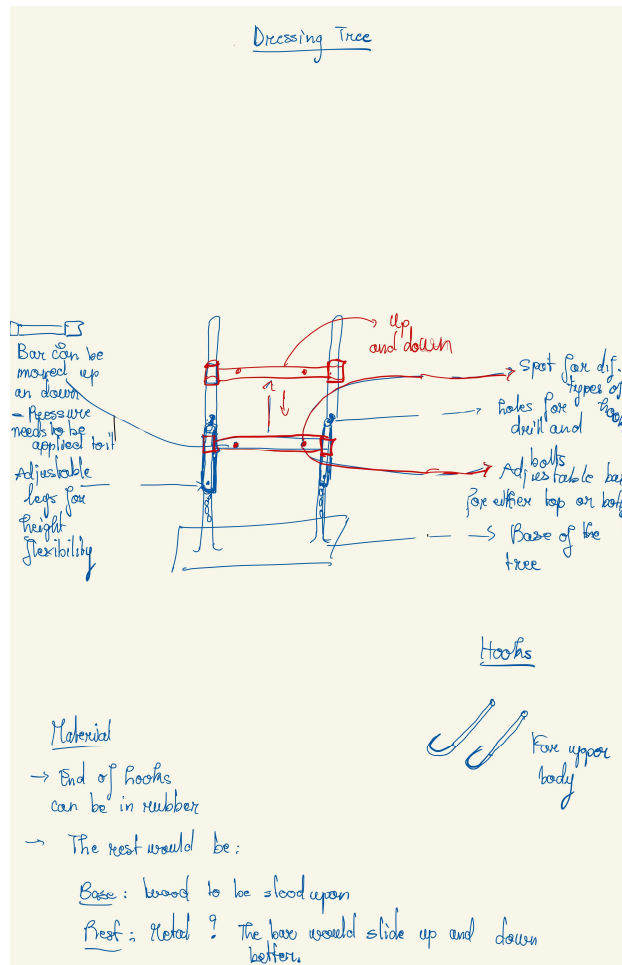 Dressing Tree
Up
and down
Bar can be
moved up
an down
- Pressure
needs to be
applied to it
Adjustable
legs for
height
flexibility
Spot for dif.
types of
holes for
drill and
bolts
Adjustable bar
for either top or
Base of the
tree
Hooks
For upper
body
Material
→ End of hooks
can be in rubber
→ The rest would be:
Base: wood to be stood upon
Rest: Metal? The bar would slide up and down
better.